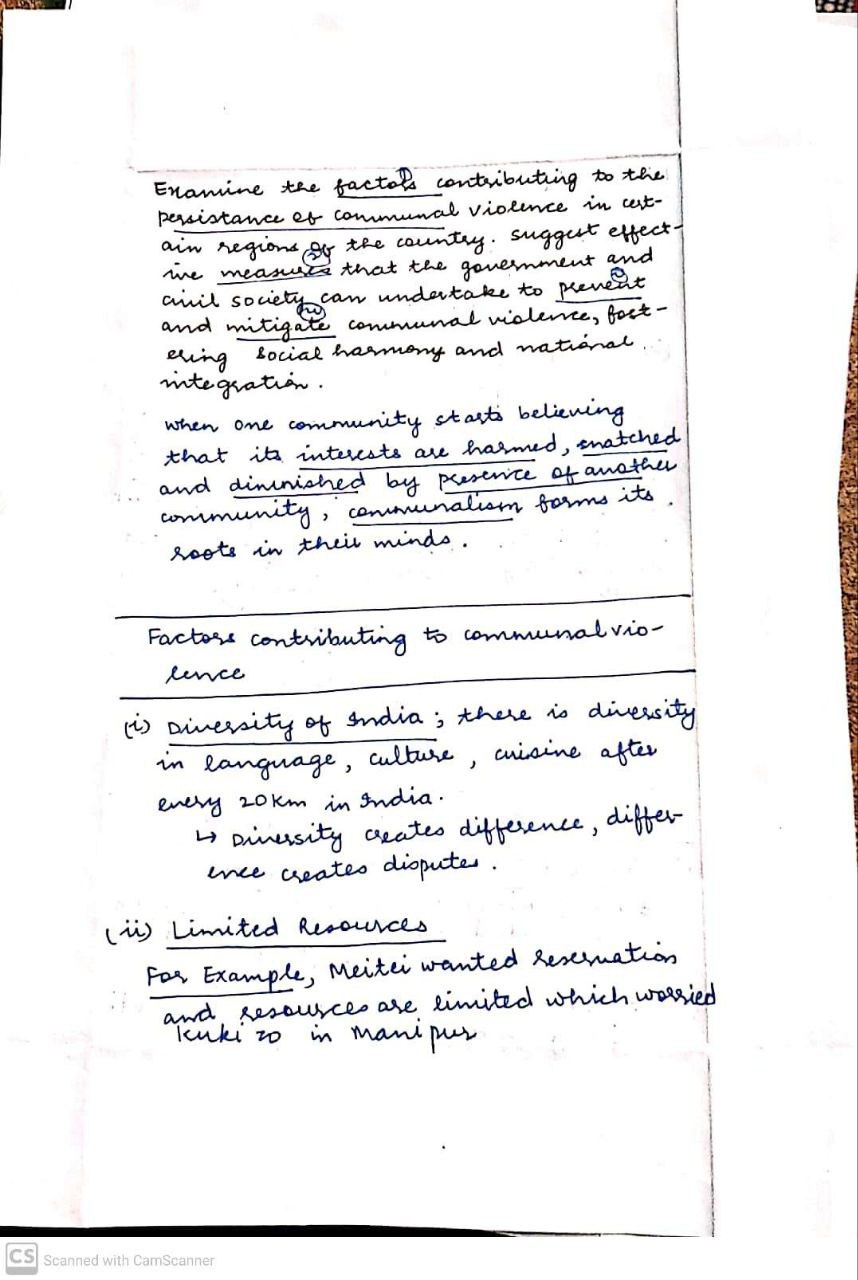 Examine the factors contributing to the
persistance of communal violence in cert-
ain regions of the country. suggest effect-
ive measures that the government and
civil society can undertake to prevent
and mitigate communal violence, fost-
ering social harmony and national
integration.
when one community starts believing
that its interests are harmed, snatched
and diminished by presence of another
community, communalism forms its
roots in their minds.
Factors contributing to communal vio-
lence
(i) Diversity of India ; there is diversity
in language, culture, cuisine after
every 20km in India.
↳ Diversity creates difference, differ-
ence creates disputes.
(ii) Limited Resources
For Example, Meitei wanted reservation
and resources are limited which worried
Kuki zo in Manipur
CS Scanned with CamScanner